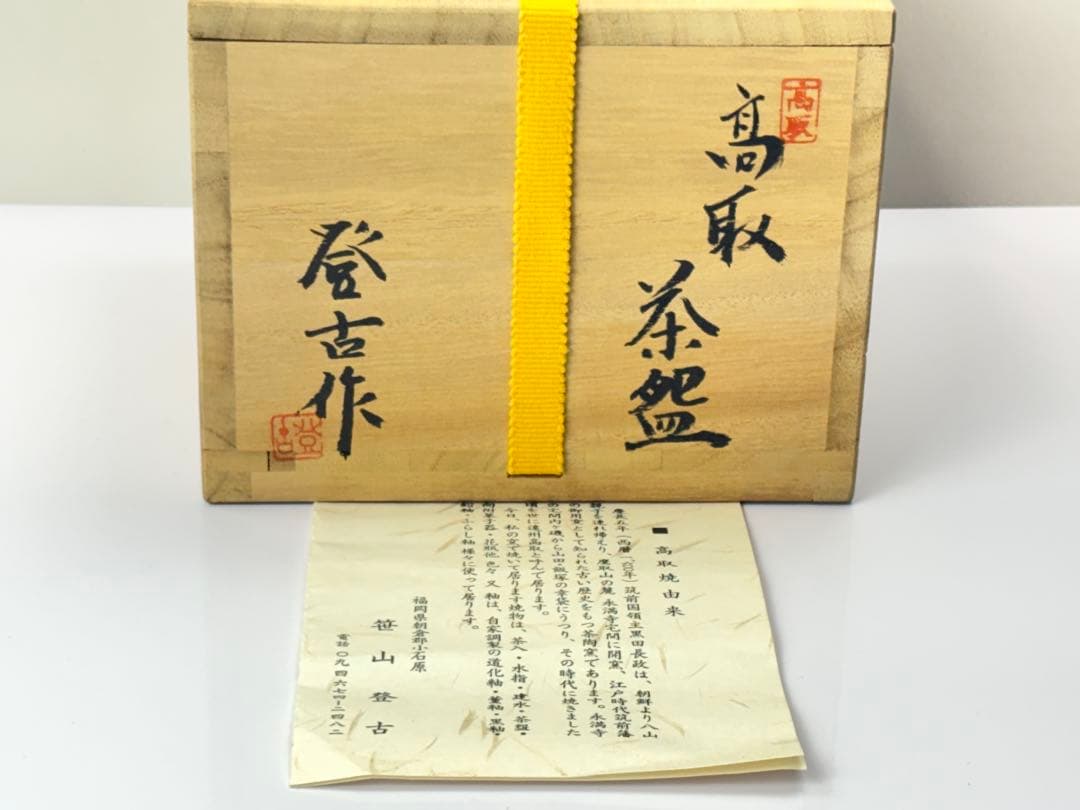 高取
高取茶盌
登古作
登古
■高取焼由来
慶長五年(西暦一六〇〇年)筑前国領主黒田長政は、朝鮮より八山
を連れ帰えり、鷹取山の麓、永満寺宅間に開窯、江戸時代筑前藩
の御用窯として知られた古い歴史をもつ茶陶窯であります。永満寺
宅間内ヶ磯から山田・飯塚の幸袋にうつり、その時代に焼きました
頃を世に遠州高取と呼んで居ります。
今日、私の窯で焼いて居ります焼物は、茶入・水指・建水・茶盌・
向附菓子器・花瓶他色々又釉は、自家調製の道化釉・藁釉・黒釉・
釉・ふらし釉様々に使って居ります。
福岡県朝倉郡小石原
笹山登古
電話〇九四六七四ー二四八二